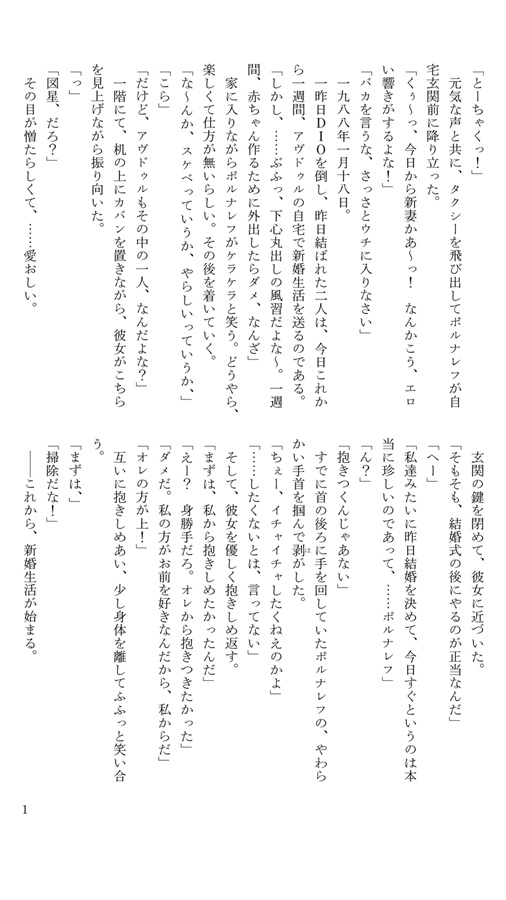 「とーちゃくっ！」
　元気な声と共に、タクシーを飛び出してポルナレフが自
宅玄関前に降り立った。
「くぅ～っ、今日から新妻かあ～っ！　なんかこう、エロ
い響きがするよな！」
「バカを言うな、さっさとウチに入りなさい」
　一九八八年一月十八日。
　一昨日ＤＩＯを倒し、昨日結ばれた二人は、今日これか
ら一週間、アヴドゥルの自宅で新婚生活を送るのである。
「しかし、……ぶふっ、下心丸出しの風習だよな～。一週
間、赤ちゃん作るために外出したらダメ、なんざ」
　家に入りながらポルナレフがケラケラと笑う。どうやら、
楽しくて仕方が無いらしい。その後を着いていく。
「な～んか、スケベっていうか、やらしいっていうか、」
「こら」
「だけど、アヴドゥルもその中の一人、なんだよな？」
　一階にて、机の上にカバンを置きながら、彼女がこちら
を見上げながら振り向いた。
「っ」
「図星、だろ？」
　その目が憎たらしくて、……愛おしい。
　玄関の鍵を閉めて、彼女に近づいた。
「そもそも、結婚式の後にやるのが正当なんだ」
「へー」
「私達みたいに昨日結婚を決めて、今日すぐというのは本
当に珍しいのであって、……ポルナレフ」
「ん？」
「抱きつくんじゃあない」
　すでに首の後ろに手を回していたポルナレフの、やわら
かい手首を掴んで剥がした。
は
「ちぇー、イチャイチャしたくねえのかよ」
「……したくないとは、言ってない」
　そして、彼女を優しく抱きしめ返す。
「まずは、私から抱きしめたかったんだ」
「えー？　身勝手だろ。オレから抱きつきたかった」
「ダメだ。私の方がお前を好きなんだから、私からだ」
「オレの方が上！」
　互いに抱きしめあい、少し身体を離してふふっと笑い合
う。
「まずは、」
「掃除だな！」
　――これから、新婚生活が始まる。
1